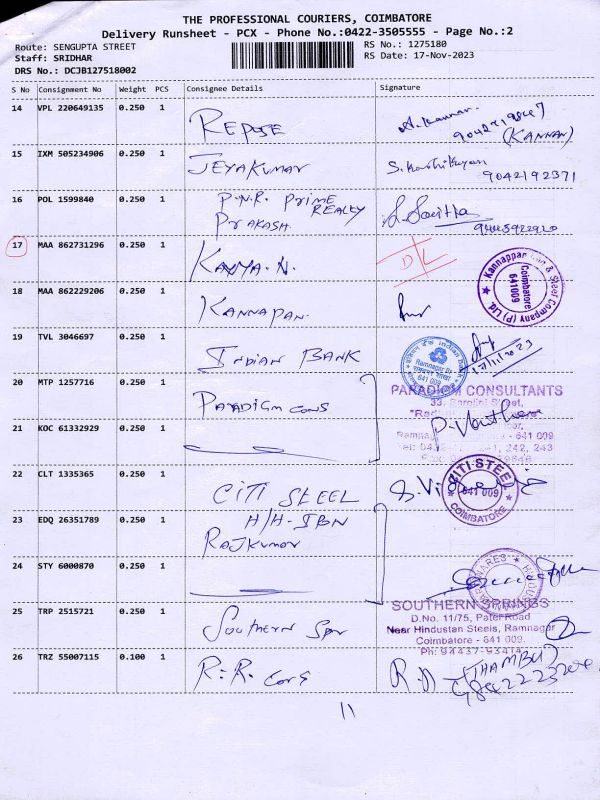 THE PROFESSIONAL COURIERS, COIMBATORE
Delivery Runsheet - PCX - Phone No.:0422-3505555 - Page No.:2
Route: SENGUPTA STREET
RS No.: 1275180
Staff: SRIDHAR
RS Date: 17-Nov-2023
DRS No.: DCJB127518002
S No Consignment No Weight PCS Consignee Details Signature
14 VPL 220649135 0.250 1 REPOSE A. Kannan.
(KANNAN)
15 IXM 505234906 0.250 1 JEYAKUMAR S. Karthikeyan
9042192371
16 POL 1599840 0.250 1 P.N.R. PRIME
REALTY
PRAKASH
17 MAA 862731296 0.250 1 KAVYA. N. D/L
Kannappan Iron & Steel Company (P) Ltd.
Coimbatore
641009
18 MAA 862229206 0.250 1 KANNAPAN.
19 TVL 3046697 0.250 1 INDIAN BANK
Indian Bank
Ramnagar Br
641 009
17/11/2023
20 MTP 1257716 0.250 1 PARADIGM CONS
PARADIGM CONSULTANTS
21 KOC 61332929 0.250 1
22 CLT 1335365 0.250 1 CITI STEEL
CITI STEEL
641 009
COIMBATORE
23 EDQ 26351789 0.250 1 H/H-IBN
RAJKUMAR
24 STY 6000870 0.250 1
25 TRP 2515721 0.250 1 SOUTHERN SPR
SOUTHERN SPRINGS
D.No. 11/75, Patel Road
Near Hindustan Steels, Ramnagar
Coimbatore - 641 009.
Ph: 94437-93414
26 TRZ 55007115 0.100 1 R.R. CONS R.D (THAMBU)
11